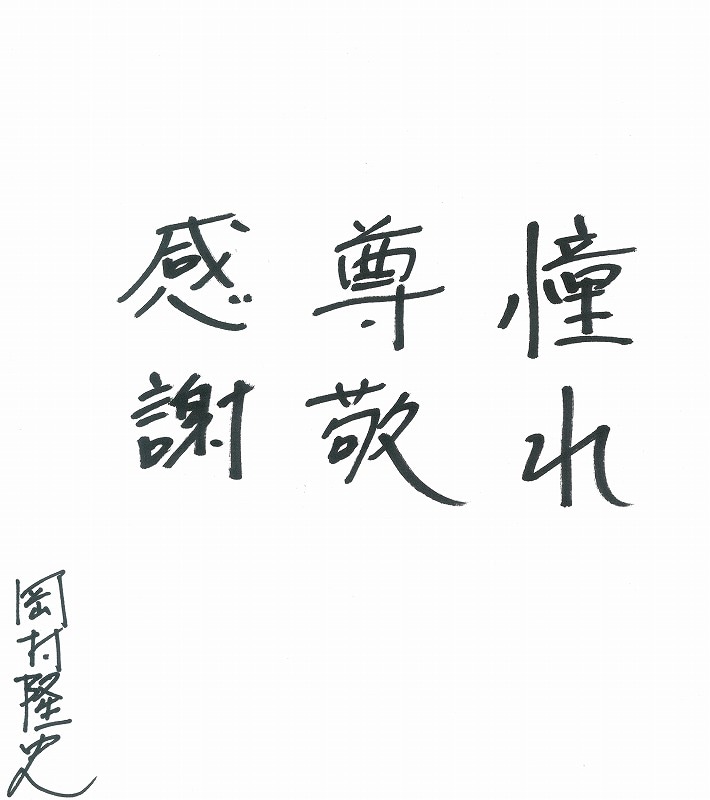 憧れ
尊敬
感謝
岡村隆史